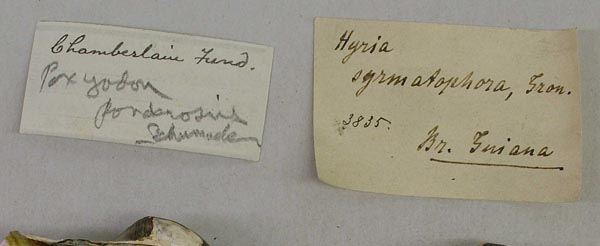 Chamberlain Fund.
Paxyodon
ponderosus
Schumacher
Hyria
syrmatophora, Gron.
3835.
Br. Guiana